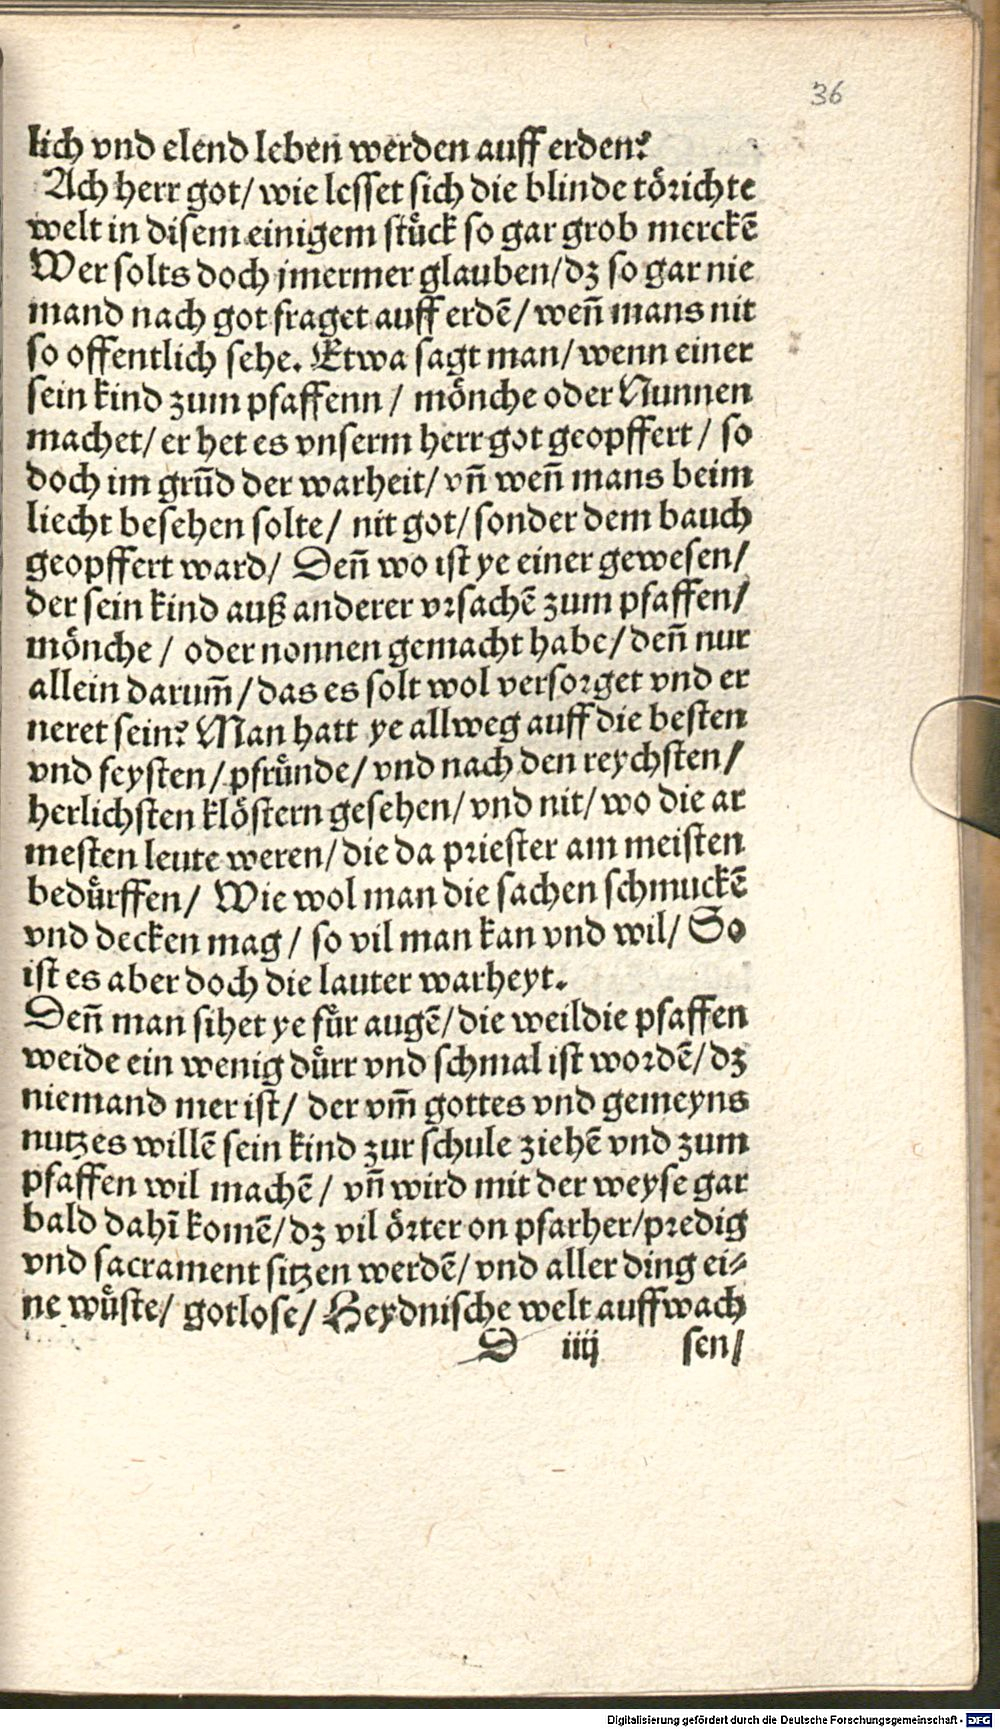 36
lich vnd elend leben werden auff erden?
Ach herr got/ wie lesset sich die blinde toͤrichte
welt in disem einigem stuͤck so gar grob merckē
Wer solts doch jmermer glauben/ dz so gar nie
mand nach got fraget auff erdē/ weñ mans nit
so offentlich sehe. Etwa sagt man/ wenn einer
sein kind zum pfaffenn / moͤnche oder Nunnen
machet/ er het es vnserm herr got geopffert / so
doch im grūd der warheit/ vñ weñ mans beim
liecht besehen solte/ nit got/ sonder dem bauch
geopffert ward/ Deñ wo ist ye einer gewesen/
der sein kind auß anderer vrsachē zum pfaffen/
moͤnche / oder nonnen gemacht habe/ deñ nur
allein darum̄/ das es solt wol versorget vnd er
neret sein? Man hatt ye allweg auff die besten
vnd feysten/ pfruͤnde/ vnd nach den reychsten/
herlichsten kloͤstern gesehen/ vnd nit/ wo die ar
mesten leute weren/ die da priester am meisten
beduͤrffen/ Wie wol man die sachen schmuckē
vnd decken mag / so vil man kan vnd wil/ So
ist es aber doch die lauter warheyt.
Deñ man sihet ye fuͤr augē/ die weil die pfaffen
weide ein wenig duͤrr vnd schmal ist wordē/ dz
niemand mer ist/ der vm̄ gottes vnd gemeyns
nutzes willē sein kind zur schule ziehē vnd zum
pfaffen wil machē/ vñ wird mit der weyse gar
bald dahī komē/ dz vil oͤrter on pfarher/ predig
vnd sacrament sitzen werdē/ vnd aller ding ei⸗
ne wuͤste/ gotlose/ Heydnische welt auffwach
D iiij sen/
Digitalisierung gefördert durch die Deutsche Forschungsgemeinschaft - DFG